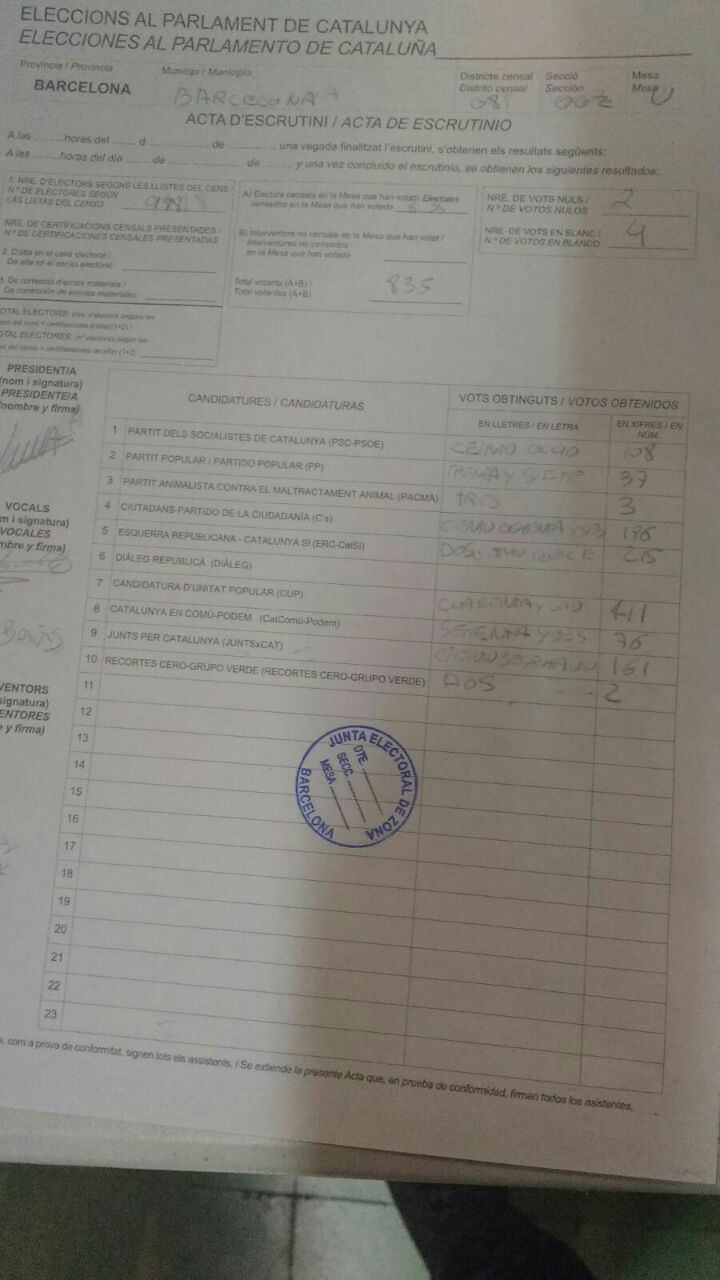 ELECCIONS AL PARLAMENT DE CATALUNYA
ELECCIONES AL PARLAMENTO DE CATALUÑA
Província / Provincia
BARCELONA
Municipi / Municipio
BARCELONA
Districte censal
Distrito censal
08
Secció
Sección
002
Mesa
Mesa
U
ACTA D'ESCRUTINI / ACTA DE ESCRUTINIO
A les ..........hores del ........ d ................ de ................, una vegada finalitzat l'escrutini, s'obtenen els resultats següents:
A las ..........horas del día ........ de ................ de .......... y una vez concluido el escrutinio, se obtienen los siguientes resultados:
1. NRE. D'ELECTORS SEGONS LES LLISTES DEL CENS /
N.º DE ELECTORES SEGÚN
LAS LISTAS DEL CENSO
NRE. DE CERTIFICACIONS CENSALS PRESENTADES /
N.º DE CERTIFICACIONES CENSALES PRESENTADAS
2. D'alta en el cens electoral /
De alta en el censo electoral:
3. De correcció d'errors materials /
De corrección de errores materiales:
TOTAL ELECTORS:
TOTAL ELECTORES:
A) Electors censats en la Mesa que han votat / Electores
censados en la Mesa que han votado
B) Interventors no censats en la Mesa que han votat /
Interventores no censados
en la Mesa que han votado
Total votants (A+B) /
Total votantes (A+B)
835
NRE. DE VOTS NULS /
N.º DE VOTOS NULOS
2
NRE. DE VOTS EN BLANC /
N.º DE VOTOS EN BLANCO
4
PRESIDENT/A
(nom i signatura)
PRESIDENTE/A
(nombre y firma)
VOCALS
VOCALES
CANDIDATURES / CANDIDATURAS
VOTS OBTINGUTS / VOTOS OBTENIDOS
EN LLETRES / EN LETRA
EN XIFRES / EN NÚM.
1 PARTIT DELS SOCIALISTES DE CATALUNYA (PSC-PSOE) CIENTO OCHO 108
2 PARTIT POPULAR / PARTIDO POPULAR (PP) TREINTA Y SIETE 37
3 PARTIT ANIMALISTA CONTRA EL MALTRACTAMENT ANIMAL (PACMA) TRES 3
4 CIUTADANS-PARTIDO DE LA CIUDADANÍA (C's)
5 ESQUERRA REPUBLICANA - CATALUNYA SÍ (ERC-CatSí) 215
6 DIÀLEG REPUBLICÀ (DIÀLEG)
7 CANDIDATURA D'UNITAT POPULAR (CUP)
8 CATALUNYA EN COMÚ-PODEM (CatComú-Podem) 76
9 JUNTS PER CATALUNYA (JUNTSxCAT) 161
10 RECORTES CERO-GRUPO VERDE (RECORTES CERO-GRUPO VERDE) DOS 2
11
12
13
14
15
16
17
18
19
20
21
22
23
JUNTA ELECTORAL DE ZONA
DTE.
SECC.
MESA
BARCELONA
com a prova de conformitat, signen tots els assistents. / Se extiende la presente Acta que, en prueba de conformidad, firman todos los asistentes.